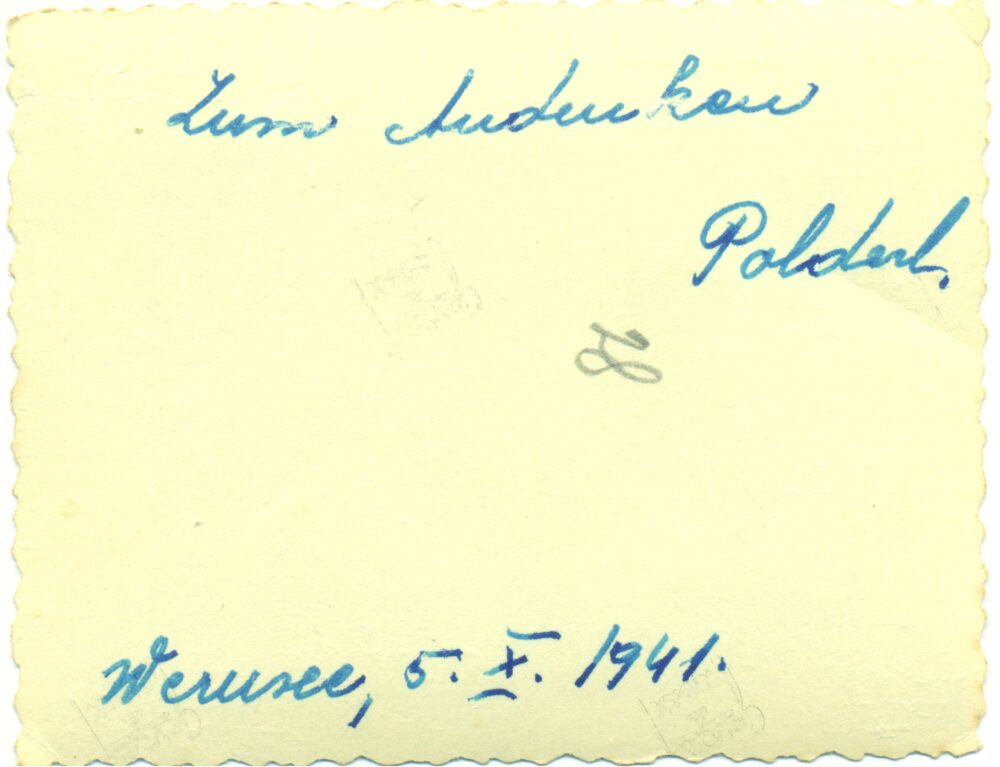 Zum Andenken
Polderl.
Werusee, 5. X. 1941.